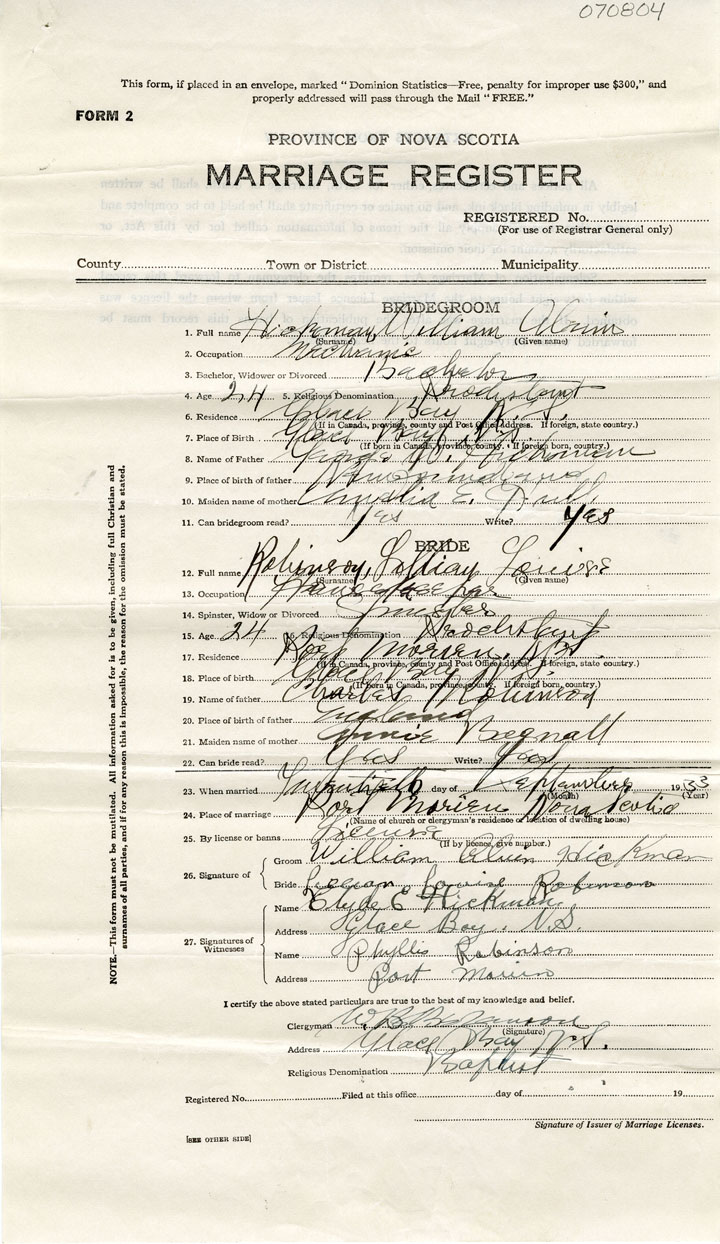 070804
This form, if placed in an envelope, marked “Dominion Statistics—Free, penalty for improper use $300,” and
properly addressed will pass through the Mail “FREE.”
FORM 2
PROVINCE OF NOVA SCOTIA
MARRIAGE REGISTER
REGISTERED No.
(For use of Registrar General only)
County Town or District Municipality
BRIDEGROOM
1. Full name Hickman, William
(Surname) (Given name)
2. Occupation Mechanic
3. Bachelor, Widower or Divorced Bachelor
4. Age 24 5. Religious Denomination Protestant
6. Residence Glace Bay N.S.
(If in Canada, province, county and Post Office address. If foreign, state country.)
7. Place of Birth Glace Bay N.S.
(If born in Canada, province, county. If foreign born, country.)
8. Name of Father Hickman
9. Place of birth of father Newfoundland
10. Maiden name of mother E.
11. Can bridegroom read? Yes Write? Yes
BRIDE
12. Full name Robinson, Lillian Louise
(Surname) (Given name)
13. Occupation Housekeeper
14. Spinster, Widow or Divorced
15. Age 24 16. Religious Denomination Protestant
17. Residence Port Morien, N.S.
(If in Canada, province, county and Post Office address. If foreign, state country.)
18. Place of birth Glace Bay N.S.
(If born in Canada, province, county. If foreign born, country.)
19. Name of father Charles Robinson
20. Place of birth of father England
21. Maiden name of mother Annie Bagnall
22. Can bride read? Yes Write? Yes
23. When married Twentieth day of September 1933
(Month) (Year)
24. Place of marriage Port Morien Nova Scotia
(Name of church or clergyman's residence or location of dwelling house)
25. By license or banns License
(If by licence, give number.)
26. Signature of Groom William Alvin Hickman
Bride Lillian Louise Robinson
27. Signatures of Witnesses
Name Clyde C Hickman
Address Glace Bay, N.S.
Name Phyllis Robinson
Address Port Morien
I certify the above stated particulars are true to the best of my knowledge and belief.
Clergyman W.B.
(Signature)
Address Glace Bay N.S.
Religious Denomination Baptist
Registered No. Filed at this office day of 19
Signature of Issuer of Marriage Licenses.
[SEE OTHER SIDE]
NOTE.—This form must not be mutilated. All information asked for is to be given, including full Christian and
surnames of all parties, and if for any reason this is impossible, the reason for the omission must be stated.